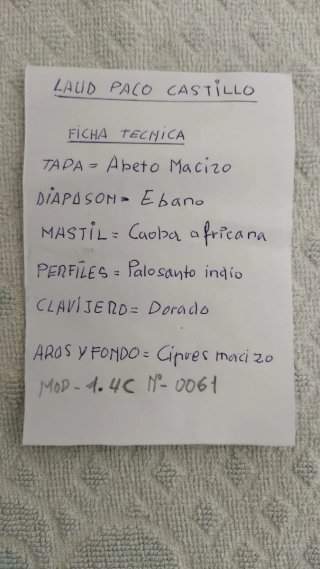 LAUD PACO CASTILLO
FICHA TECNICA
TAPA = Abeto Macizo
DIAPASON = Ebano
MASTIL = Caoba africana
PERFILES = Palosanto indio
CLAVIJERO = Dorado
AROS Y FONDO = Cipres macizo
MOD - 1.4C Nº- 0061